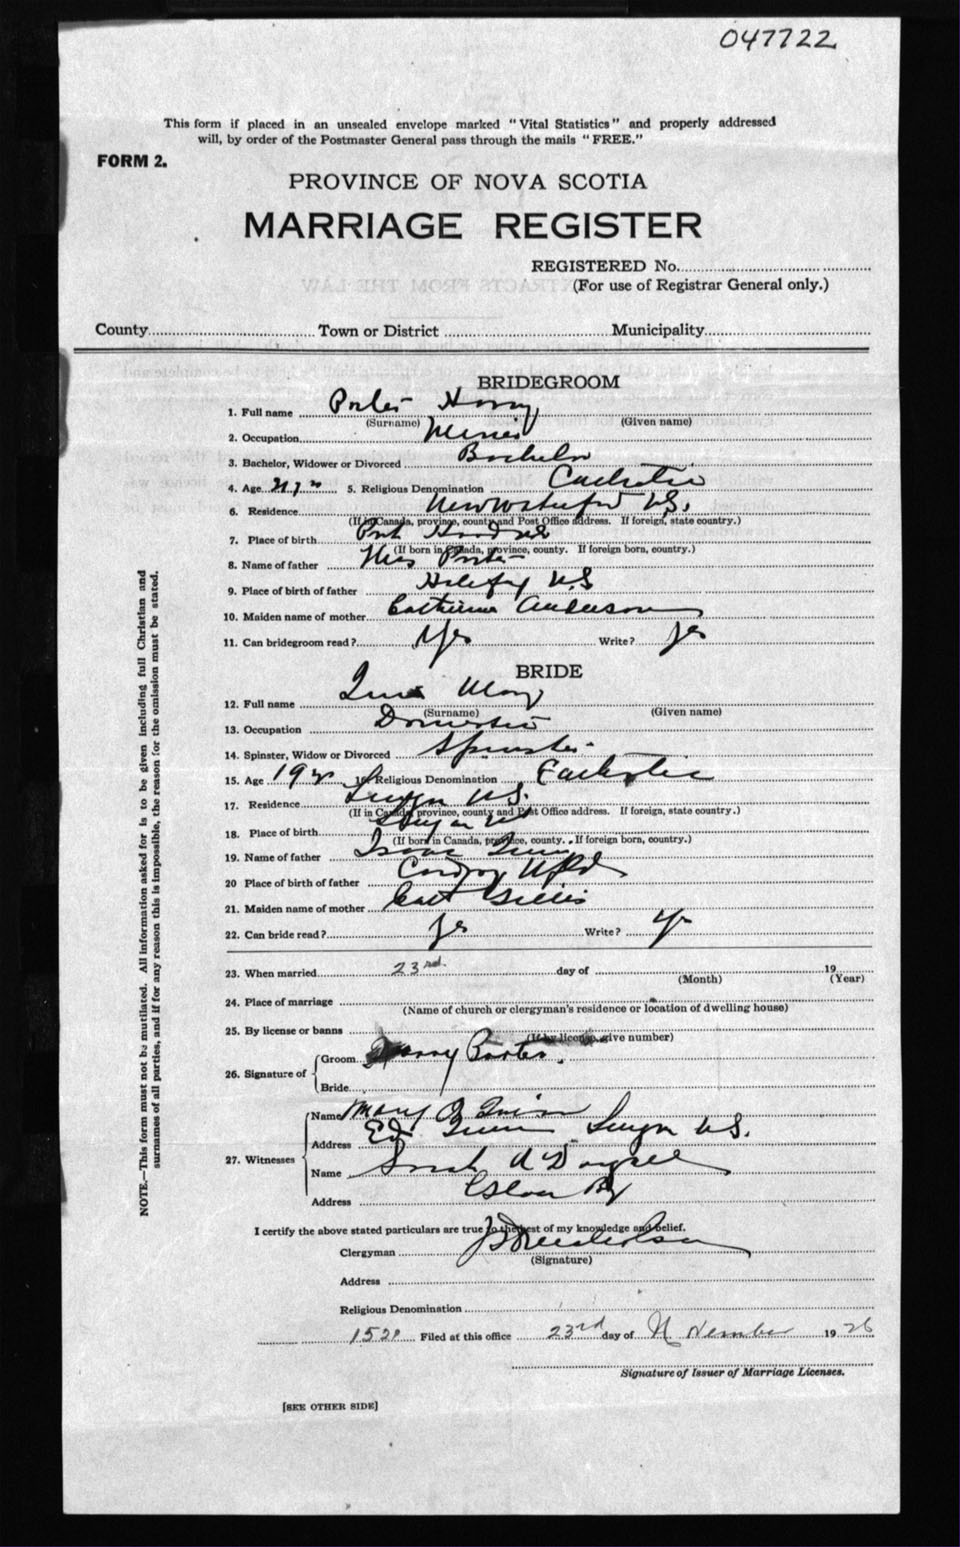 047722
This form if placed in an unsealed envelope marked "Vital Statistics" and properly addressed
will, by order of the Postmaster General pass through the mails "FREE."
FORM 2.
PROVINCE OF NOVA SCOTIA
MARRIAGE REGISTER
REGISTERED No.
(For use of Registrar General only.)
County Town or District Municipality
BRIDEGROOM
1. Full name Porter Harry
(Surname) (Given name)
2. Occupation
3. Bachelor, Widower or Divorced Bachelor
4. Age 5. Religious Denomination Catholic
6. Residence N.S.
(If in Canada, province, county and Post Office address. If foreign, state country.)
7. Place of birth Port
(If born in Canada, province, county. If foreign born, country.)
8. Name of father Porter
9. Place of birth of father Halifax N.S
10. Maiden name of mother Catherine Anderson
11. Can bridegroom read? Yes Write? Yes
BRIDE
12. Full name Mary
(Surname) (Given name)
13. Occupation Domestic
14. Spinster, Widow or Divorced Spinster
15. Age 19 16 Religious Denomination Catholic
17. Residence N.S.
(If in Canada, province, county and Post Office address. If foreign, state country.)
18. Place of birth
(If born in Canada, province, county. If foreign born, country.)
19. Name of father Isaac
20 Place of birth of father Codroy Nfld
21. Maiden name of mother Cath Gillis
22. Can bride read? Yes Write? Y
23. When married 23rd. day of 19
(Month) (Year)
24. Place of marriage
(Name of church or clergyman's residence or location of dwelling house)
25. By license or banns
(If by license, give number)
26. Signature of
Groom Harry Porter.
Bride
27. Witnesses
Name Mary
Address Ed N.S.
Name Sarah
Address
I certify the above stated particulars are true to the best of my knowledge and belief.
Clergyman
(Signature)
Address
Religious Denomination
Filed at this office 23rd day of November 1926
Signature of Issuer of Marriage Licenses.
[SEE OTHER SIDE]
NOTE.—This form must not be mutilated. All information asked for is to be given including full Christian and
surnames of all parties, and if for any reason this is impossible, the reason for the omission must be stated.